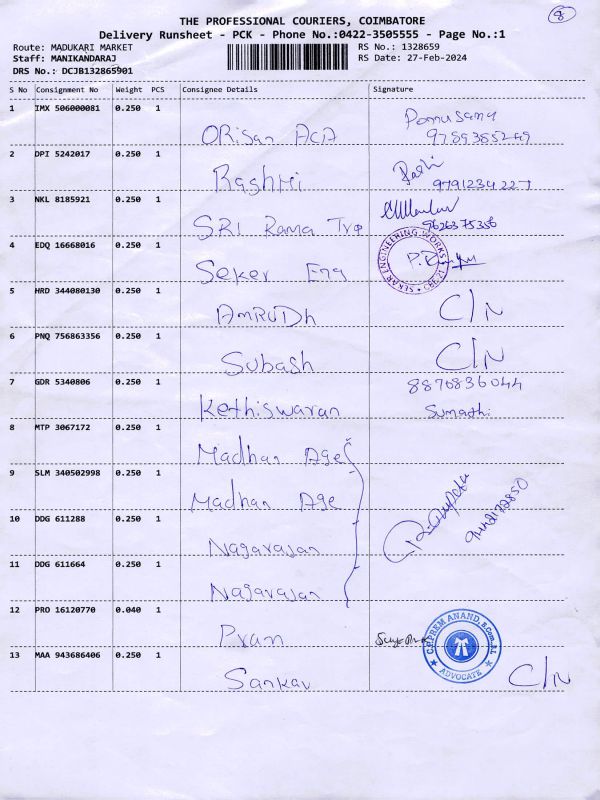 8
THE PROFESSIONAL COURIERS, COIMBATORE
Delivery Runsheet - PCK - Phone No.:0422-3505555 - Page No.:1
Route: MADUKARI MARKET
Staff: MANIKANDARAJ
DRS No.: DCJB132865901
RS No.: 1328659
RS Date: 27-Feb-2024
S No Consignment No Weight PCS Consignee Details Signature
1 IMX 506000081 0.250 1 ORisan ACA
2 DPI 5242017 0.250 1 Rashmi 9791234227
3 NKL 8185921 0.250 1 SRI Rama Trp 9626375356
4 EDQ 16668016 0.250 1 Seker Eng SEKAR ENGINEERING WORKS
5 HRD 344080130 0.250 1 AMRUDh C/N
6 PNQ 756863356 0.250 1 Subash C/N
7 GDR 5340806 0.250 1 Kethiswaran 8870836044 Sumathi
8 MTP 3067172 0.250 1 Madhan Age
9 SLM 340502998 0.250 1 Madhan Age
10 DDG 611288 0.250 1 Nagarajan
11 DDG 611664 0.250 1 Nagarajan
12 PRO 16120770 0.040 1 Pran C.PREM ANAND, ADVOCATE
13 MAA 943686406 0.250 1 Sankar C/N